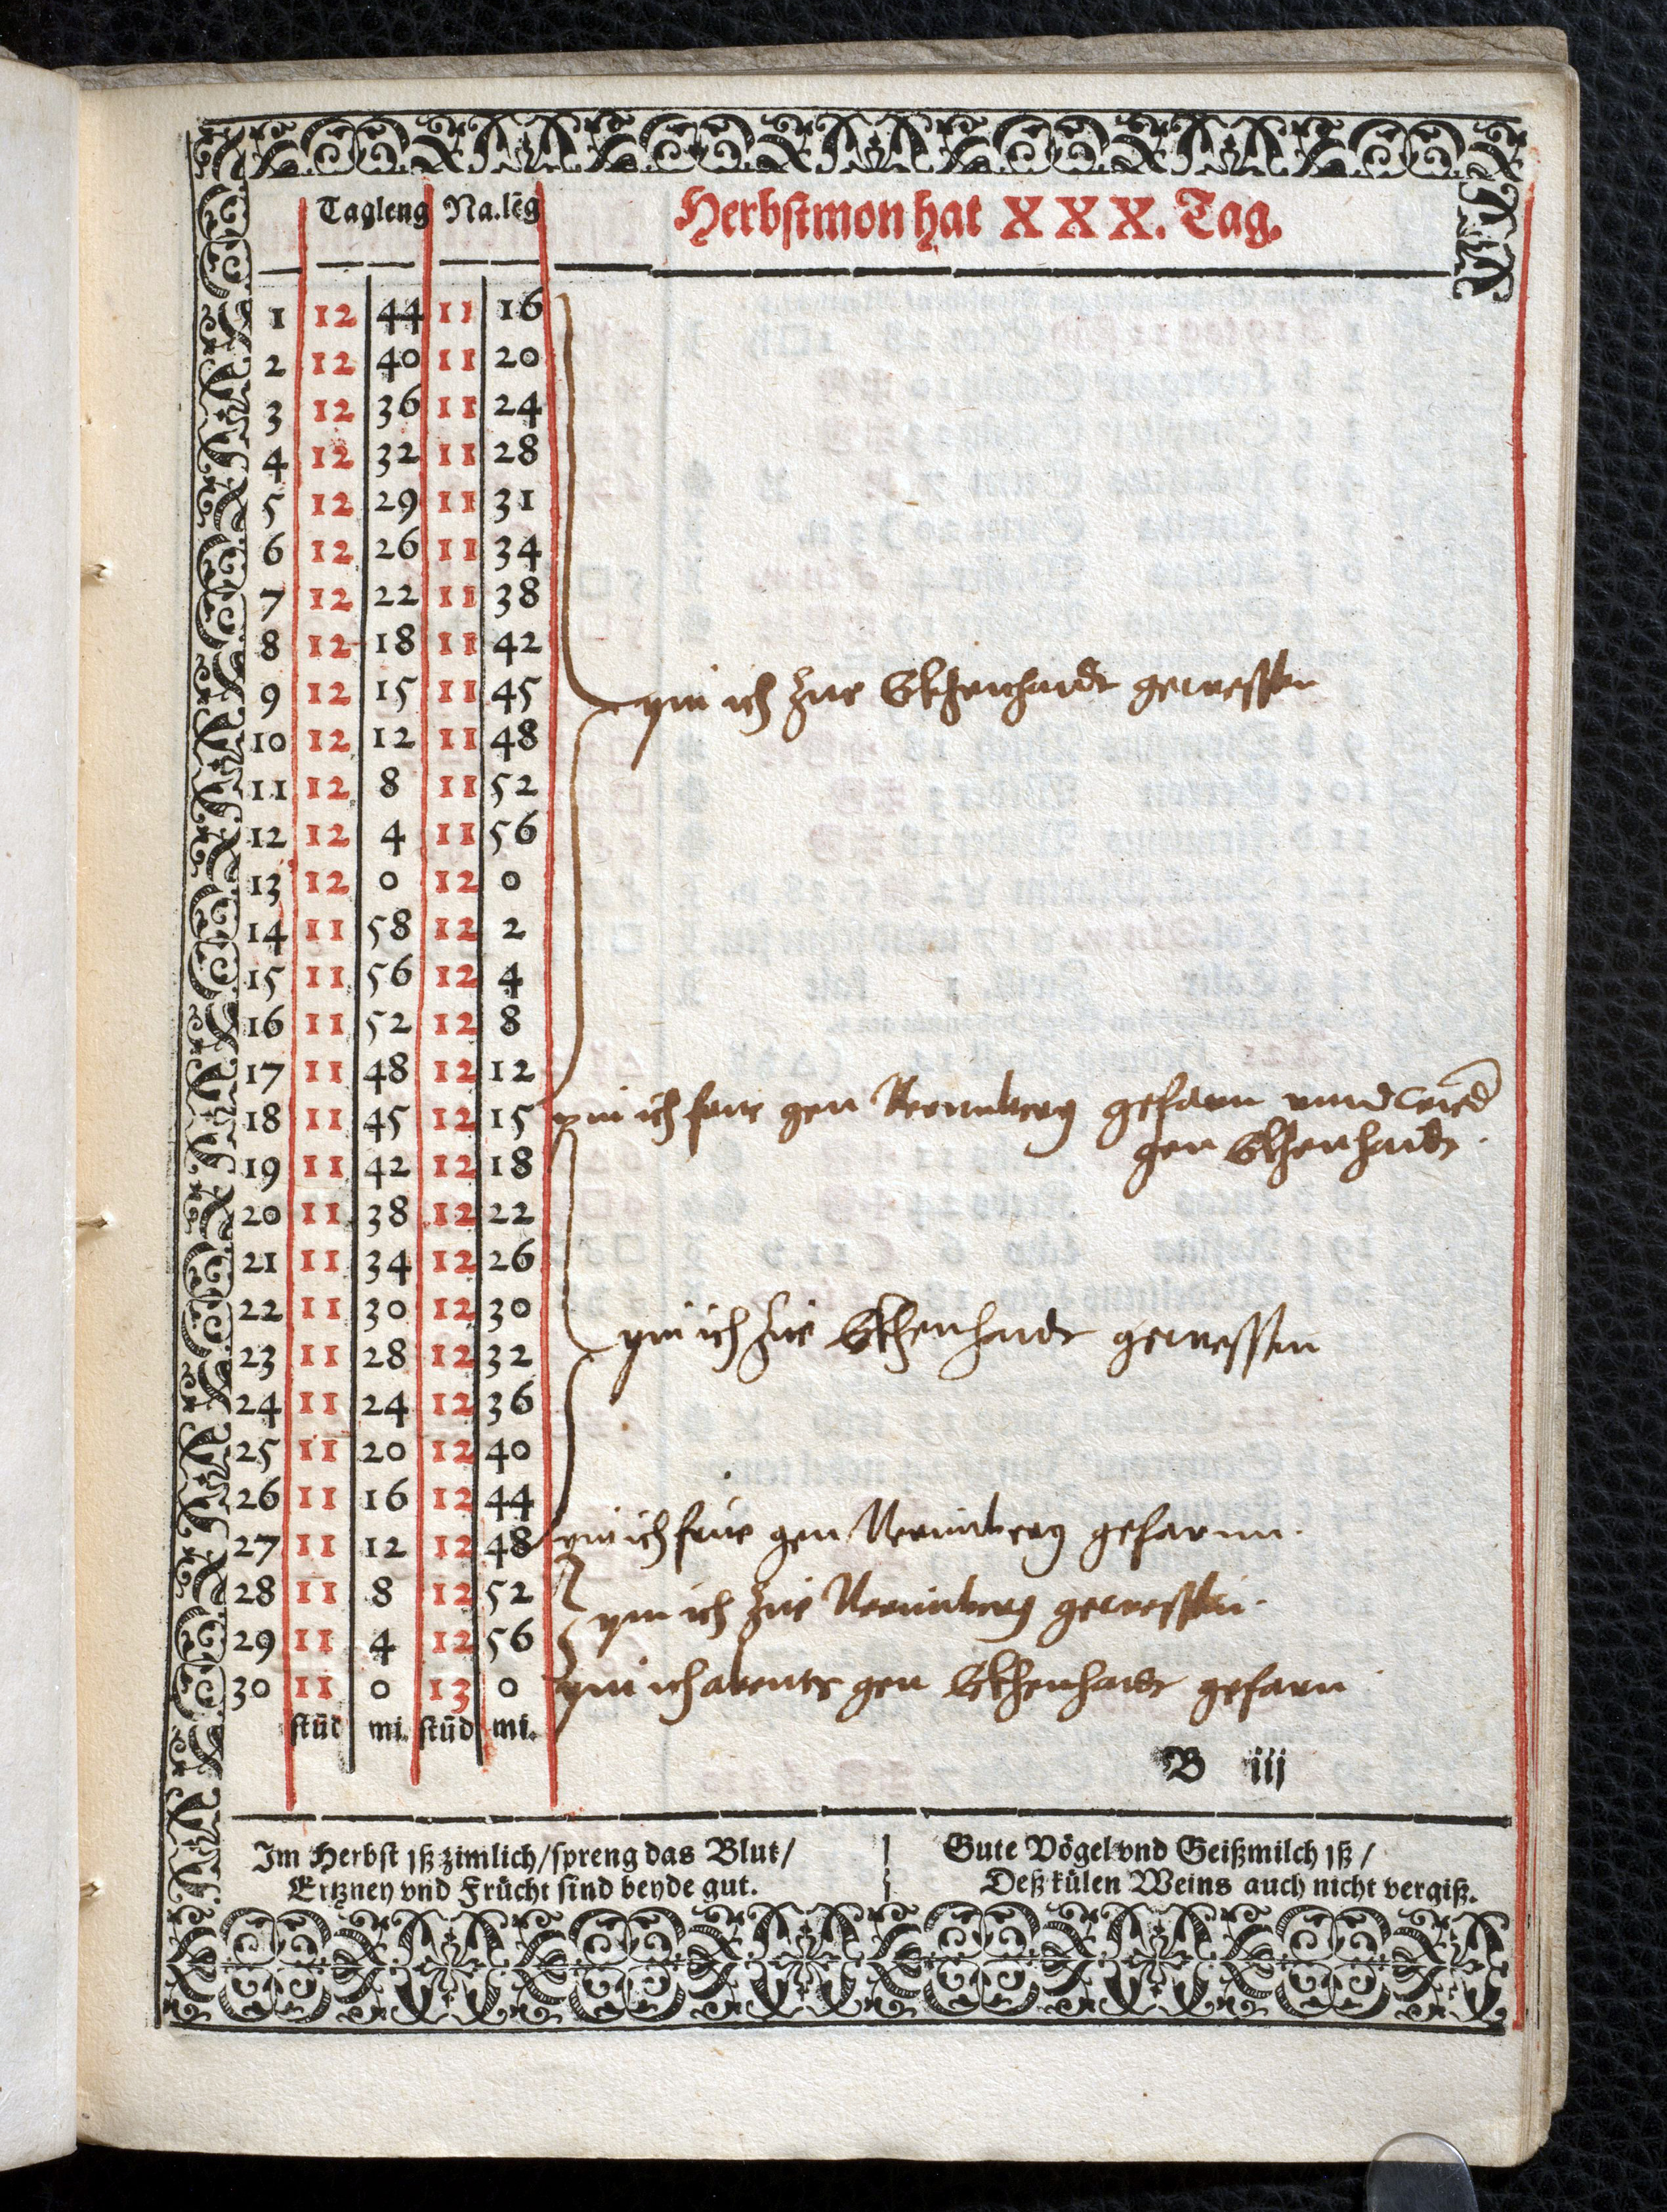 Tagleng Na.lēg Herbstmon hat XXX. Tag.
1 12 44 11 16
2 12 40 11 20
3 12 36 11 24
4 12 32 11 28
5 12 29 11 31
6 12 26 11 34
7 12 22 11 38
8 12 18 11 42
9 12 15 11 45 ich zue gewessen
10 12 12 11 48
11 12 8 11 52
12 12 4 11 56
13 12 0 12 0
14 11 58 12 2
15 11 56 12 4
16 11 52 12 8
17 11 48 12 12
18 11 45 12 15 ich frue gen Nernnberg gefarn vnnd wied
gen
19 11 42 12 18
20 11 38 12 22
21 11 34 12 26
22 11 30 12 30
23 11 28 12 32 ich zue gewessen
24 11 24 12 36
25 11 20 12 40
26 11 16 12 44
27 11 12 12 48 ich frue gen Nernnberg gefarnn.
28 11 8 12 52 ich zue Nernnberg gewessen.
29 11 4 12 56
30 11 0 13 0 ich abents gen gefarn
stūd mi. stūd mi.
B iij
Im Herbst iß zimlich/spreng das Blut/
Ertzney vnd Frücht sind beyde gut.
Gute Vögel vnd Geißmilch iß/
Deß külen Weins auch nicht vergiß.